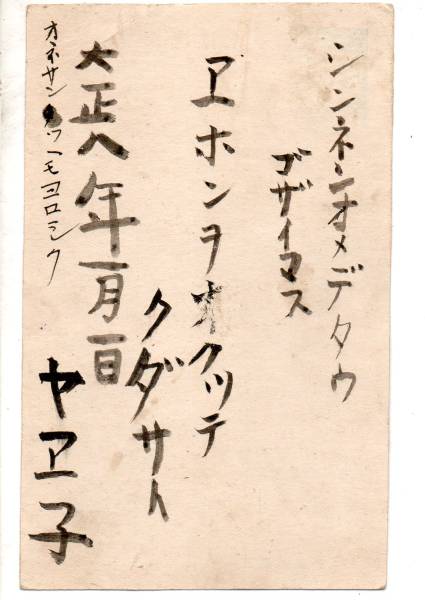 シンネンオメデタウ
ゴザイマス
ヱホンヲオクツテ
クダサイ
大正八年一月一日
ヤヱ子
オネサン ニモヨロシク